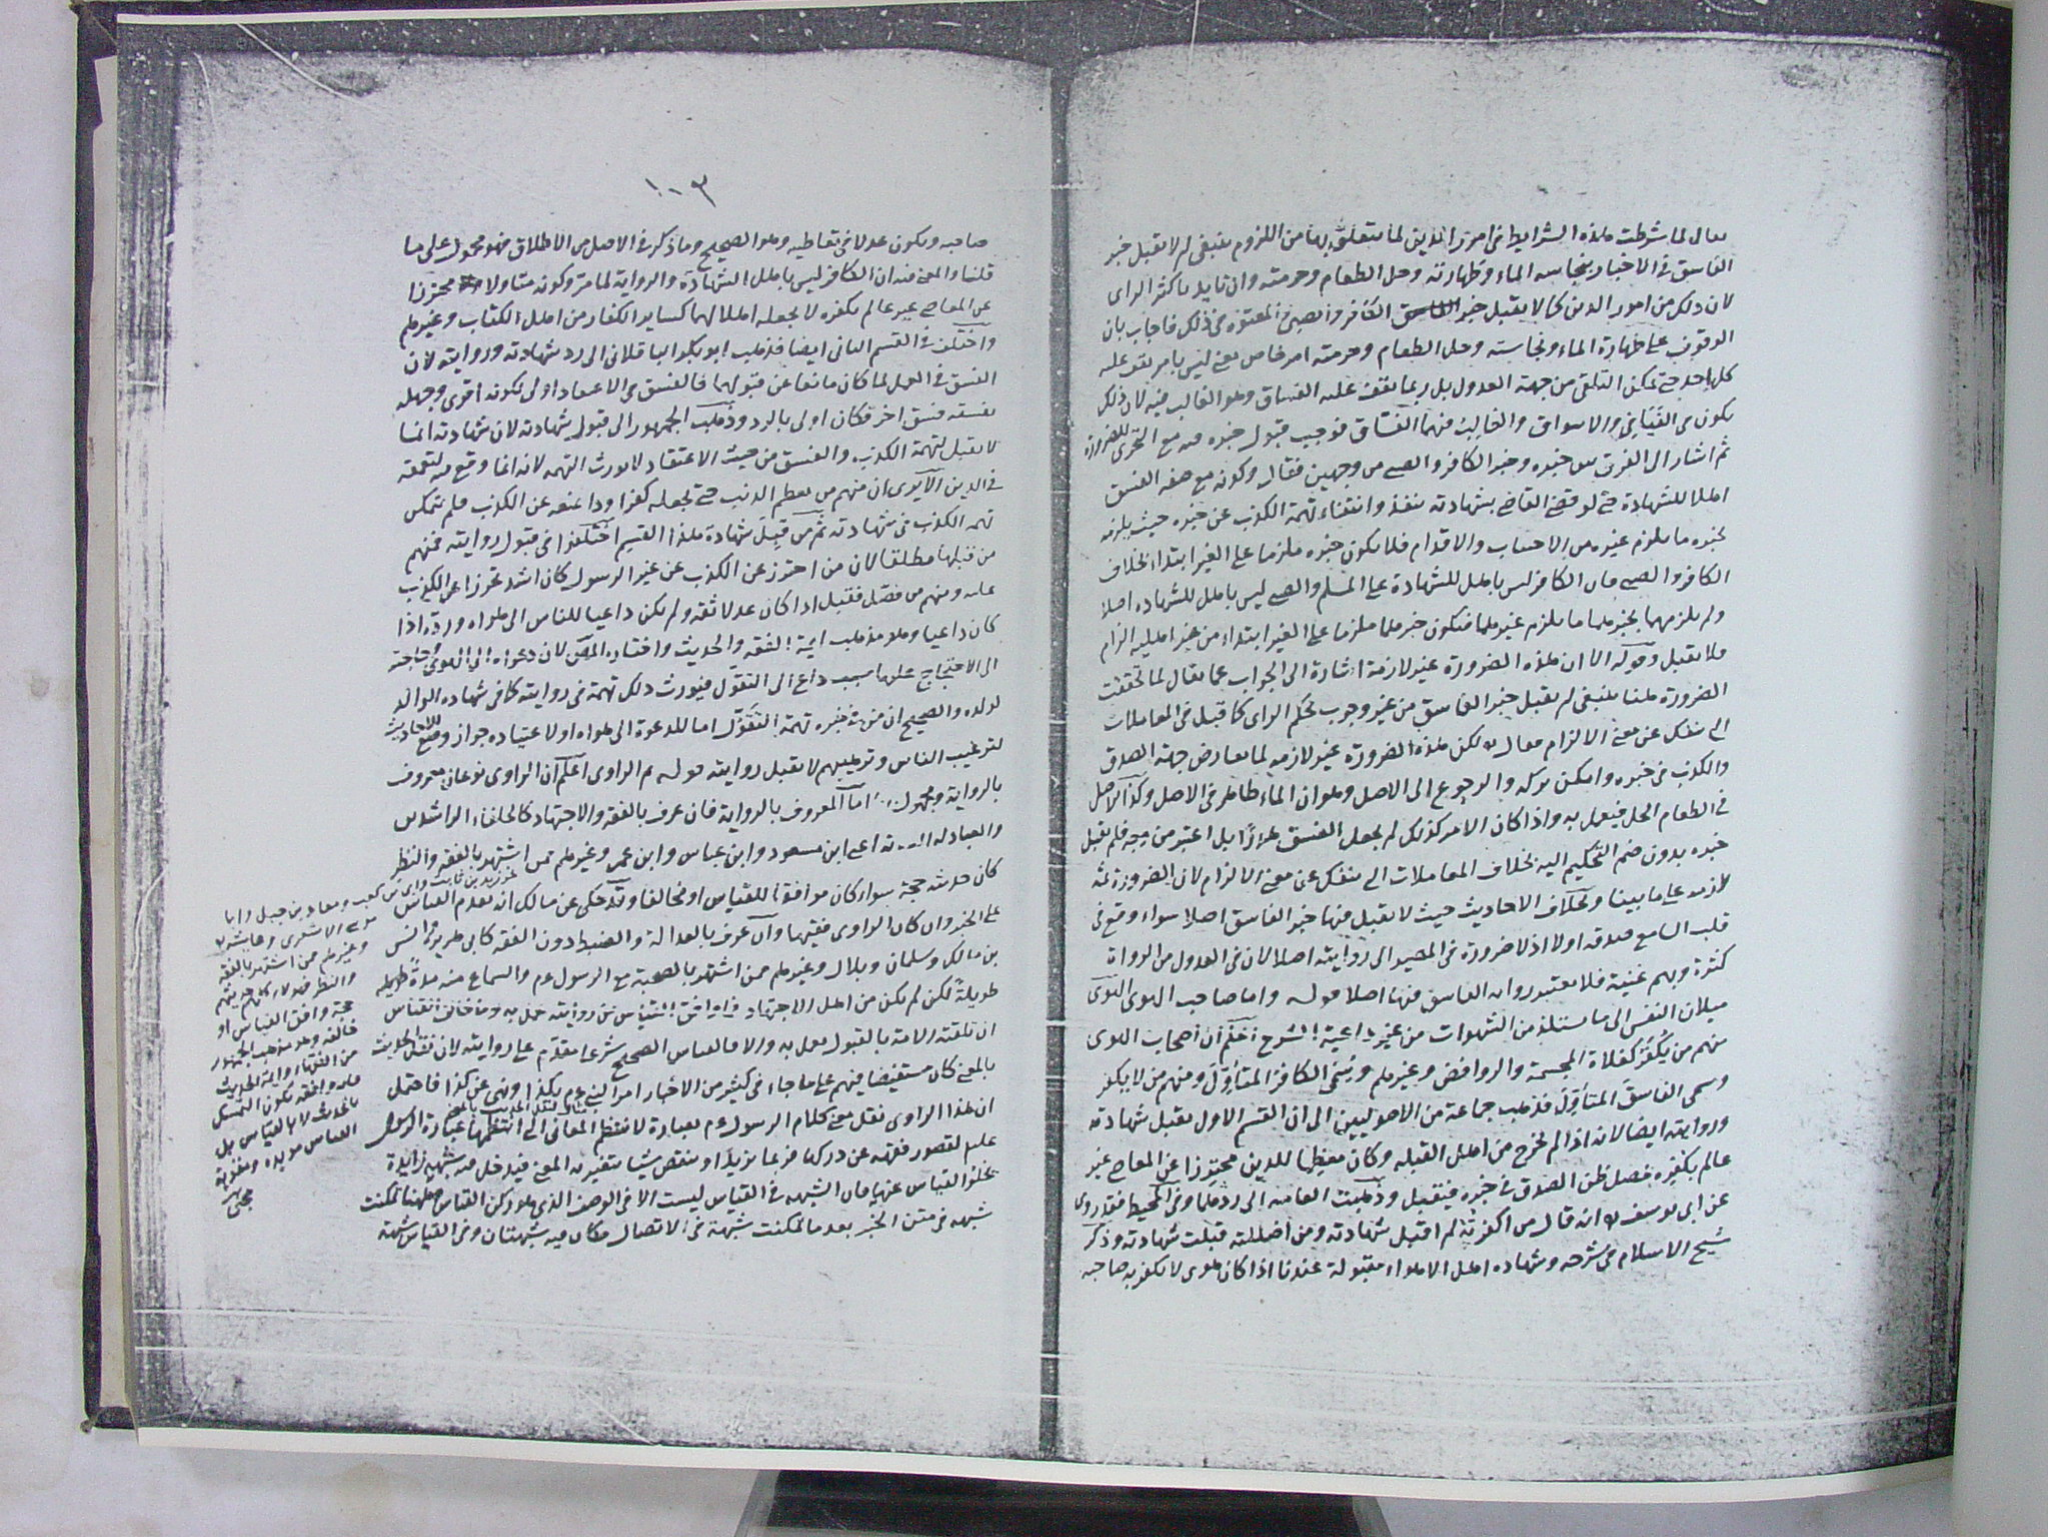 يقال لما شرطت هذه الشرايط في امور الدين لما يتعلق بها من اللزوم ينبغي ان لا يقبل خبر
الفاسق في الاخبار بنجاسه الماء وطهارته وحل الطعام وحرمته وان تايد باكثر الراى
لان ذلك من امور الدين كما لا يقبل خبر الكافر والصبي والمعتوه في ذلك فاجاب بان
الوقوف على طهارة الماء ونجاسته وحل الطعام وحرمته امر خاص يعني ليس بامر يقف عليه
كل احد حتى يمكن التلقي من جهة العدول بل ربما يقف عليه الفساق وهو الغالب فيه لان ذلك
يكون في الفيافي والاسواق والغالب فيهما الفساق فوجب قبول خبره فيه مع التحرى للضرورة
ثم اشار الى الفرق بين خبره وخبر الكافر والصبي من وجهين فقال وكونه مع صفه الفسق
اهلا للشهادة حتى لو قضى القاضي بشهادته ينفذ وانتفاء تهمة الكذب عن خبره حيث يلزمه
بخبره ما يلزم غيره من الاجتناب والاقدام فلا يكون خبره ملزما على الغير ابتداء بخلاف
الكافر والصبي فان الكافر ليس باهل للشهادة على المسلم والصبي ليس باهل للشهاده اصلا
ولم يلزمهما بخبرهما ما يلزم غيرهما فيكون خبرهما ملزما على الغير ابتداء من غير اهليه الزام
فلا يقبل وقوله الا ان هذه الضرورة غير لازمة اشارة الى الجواب عما يقال لما تحققت
الضرورة هنا ينبغي ان يقبل خبر الفاسق من غير وجوب تحكيم الراى كما قبل في المعاملات
التي تنفك عن معنى الالزام فقال لكن هذه الضرورة غير لازمه لما تعارض جهة الصدق
والكذب في خبره وامكن تركه والرجوع الى الاصل وهو ان الماء طاهر في الاصل وكذا الاصل
في الطعام الحل فيعمل به واذا كان الامر كذلك لم يجعل الفسق هدرًا بل اعتبر من وجه فلم يقبل
خبره بدون ضم التحكيم اليه بخلاف المعاملات التي تنفك عن معنى الالزام لان الضرورة ثمه
لازمه على ما بينا وبخلاف الاحاديث حيث لا يقبل فيها خبر الفاسق اصلا سواء وقع في
قلب السامع صدقه اولا اذ لا ضرورة في المصير الى روايته اصلا لان في العدول من الرواة
كثرة وبهم غنية فلا يعتبر رواية الفاسق فيها اصلا قوله واما صاحب الهوى الهوى
ميلان النفس الى ما يستلذ من الشهوات من غير داعية الشرع اعلم ان اصحاب الهوى
منهم من يكفر كغلاة المجسمة والروافض وغيرهم ويسمى الكافر المتأول ومنهم من لا يكفر
وسمى الفاسق المتأول فذهب جماعة من الاصوليين الى ان القسم الاول يقبل شهادته
وروايته ايضا لانه اذا لم يخرج من اهل القبله وكان معظما للدين محترزا عن المعاصي غير
عالم بكفره فحصل ظن الصدق في خبره فيقبل وذهبت العامه الى ردهما وفي المحيط فقد روى
عن ابى يوسف انه قال من اكفرته لم اقبل شهادته ومن اضللته قبلت شهادته وذكر
شيخ الاسلام في شرحه وشهاده اهل الاهواء مقبولة عندنا اذا كان هوى لا يكفر به صاحبه
١٠٣
صاحبه ويكون عدلا في تعاطيه وهو الصحيح وما ذكر في الاصل من الاطلاق فهو محمول على ما
قلنا والمعنى فيه ان الكافر ليس باهل الشهادة والرواية لما مر وكونه متاولا محترزا
عن المعاصي غير عالم بكفره لا يجعله اهلا لهما كساير الكفار من اهل الكتاب وغيرهم
واختلف في القسم الثاني ايضا فذهب ابو بكر الباقلاني الى رد شهادته وروايته لان
الفسق في العمل لما كان مانعا عن قبولها فالفسق في الاعتقاد اولى لكونه اقوى وجهله
بفسقه فسق اخر فكان اولى بالرد وذهب الجمهور الى قبول شهادته لان شهادته انما
لا يقبل لتهمة الكذب والفسق من حيث الاعتقاد لا يورث التهمه لانه انما وقع فيه لتعمقه
في الدين الا يرى ان منهم من يعظم الذنب حتى يجعله كفرا وذا يمنعه عن الكذب فلم تتمكن
تهمه الكذب في شهادته ثم من قبل شهادة هذا القسيم اختلفوا في قبول روايته فمنهم
من قبلها مطلقا لان من احترز عن الكذب عن غير الرسول كان اشد تحرزا عن الكذب
عليه ومنهم من فصّل فقبل اذا كان عدلا ثقه ولم يكن داعيا للناس الى هواه ورده اذا
كان داعيا وهو مذهب ايمة الفقه والحديث واختاره المص لان دعواه الى الهوى وحاجته
الى الاحتجاج عليها سبب داع الى التقول فيورث ذلك تهمة في روايته كما في شهاده الوالد
لولده والصحيح ان من في خبره تهمة التقول اما للدعوة الى هواه او لاعتياده جواز وضع الاحاديث
لترغيب الناس وترهيبهم لا يقبل روايته قوله ثم الراوى اعلم ان الراوى نوعان معروف
بالرواية ومجهول اما المعروف بالرواية فان عرف بالفقه والاجتهاد كالخلفاء الراشدين
والعبادله الثلاثة اعني ابن مسعود وابن عباس وابن عمر وغيرهم ممن اشتهر بالفقه والنظر
كان حديثه حجة سواء كان موافقا للقياس او مخالفا وقد حكي عن مالك انه يقدم القياس
على الخبر وان كان الراوى فقيها وان عرف بالعدالة والضبط دون الفقه كابى هريره وانس
بن مالك وسلمان وبلال وغيرهم ممن اشتهر بالصحبة مع الرسول عم والسماع منه مدة طويله
طويلة لكن لم يكن من اهل الاجتهاد فما وافق القياس من روايته عمل به وما خالف القياس
ان تلقته الامة بالقبول يعمل به والا فالقياس الصحيح شرعا مقدم على روايته لان نقل الحديث
بالمعنى كان مستفيضا فيهم على ما جاء في كثير من الاخبار امر النبي عم بكذا ونهى عن كذا فاحتمل
ان هذا الراوى نقل معنى كلام الرسول عم بعبارة لا تنتظم المعاني التي انتظمها عبارة الرسول
عليه لقصور فقهه عن دركها فربما يزيد او ينقص شيئا يتغير به المعنى فيدخل فيه شبهة زايدة
يخلوا القياس عنها فان الشبهه في القياس ليست الا في الوصف الذي هو ركن القياس وههنا تمكنت
شبهه في متن الخبر بعد ما تمكنت شبهة في الاتصال فكان فيه شبهتان وفي القياس شبهة
كزيد بن ثابت وابى بن كعب ومعاذ بن جبل وابا
موسى الاشعرى وعائشه
وغيرهم ممن اشتهر بالفقه
والنظر
حجة وافق القياس او
خالفه وهو مذهب الجمهور
من الفقهاء وايمة الحديث
فان وافقه يكون التمسك
بالحديث لا بالقياس بل
القياس مويده ومقويه